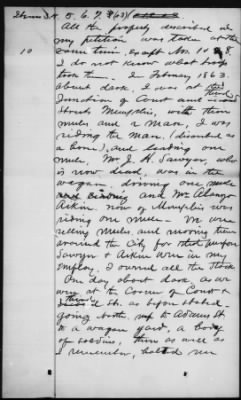 Items 3. 4. 5. 6. 7. 8 (63)
All the property described in
my petition, was taken at the
same time, except Nos. 10 & 8.
10
I do not know what troop
took them. In February 1863.
about dark, I was at the
Junction of Court and Third
Streets Memphis, with three
mules and a Man, I was
riding the man. I disented as
a bond, and leading one
mule. Mr J. H. Sawyer, who
is now dead, was in the
wagon driving one mule
and Mr Alonzo
Askew now of Memphis was
riding one mule. We were
selling Mules, and moving them
around the City for that purpose
Sawyer & Askew were in my
employ. I owned all the stock
One day about dark, as we
were at the Corner of Court &
Third St. as before stated
going North, up to Adams St.
to a wagon yard, a body
of soldiers, three as well as
I remember, halted me